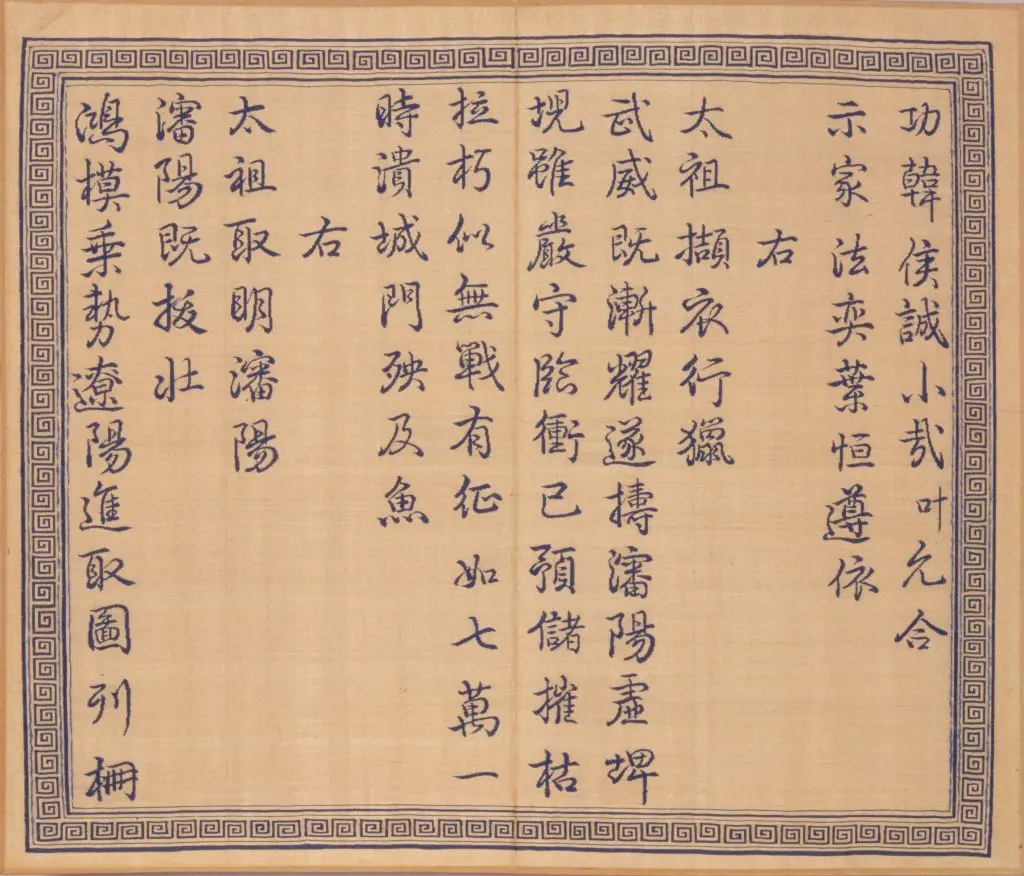 功韓侯誠小哉叶允合
示家法奕葉恒遵依
右
太祖擷衣行獵
武威既漸耀遂擣瀋陽虛埤
堄雖嚴守臨衝已預儲摧枯
拉朽似無戰有征如七萬一
時潰城門殃及魚
右
太祖取明瀋陽
瀋陽既拔壯
鴻模乘勢遼陽進取圖列柵